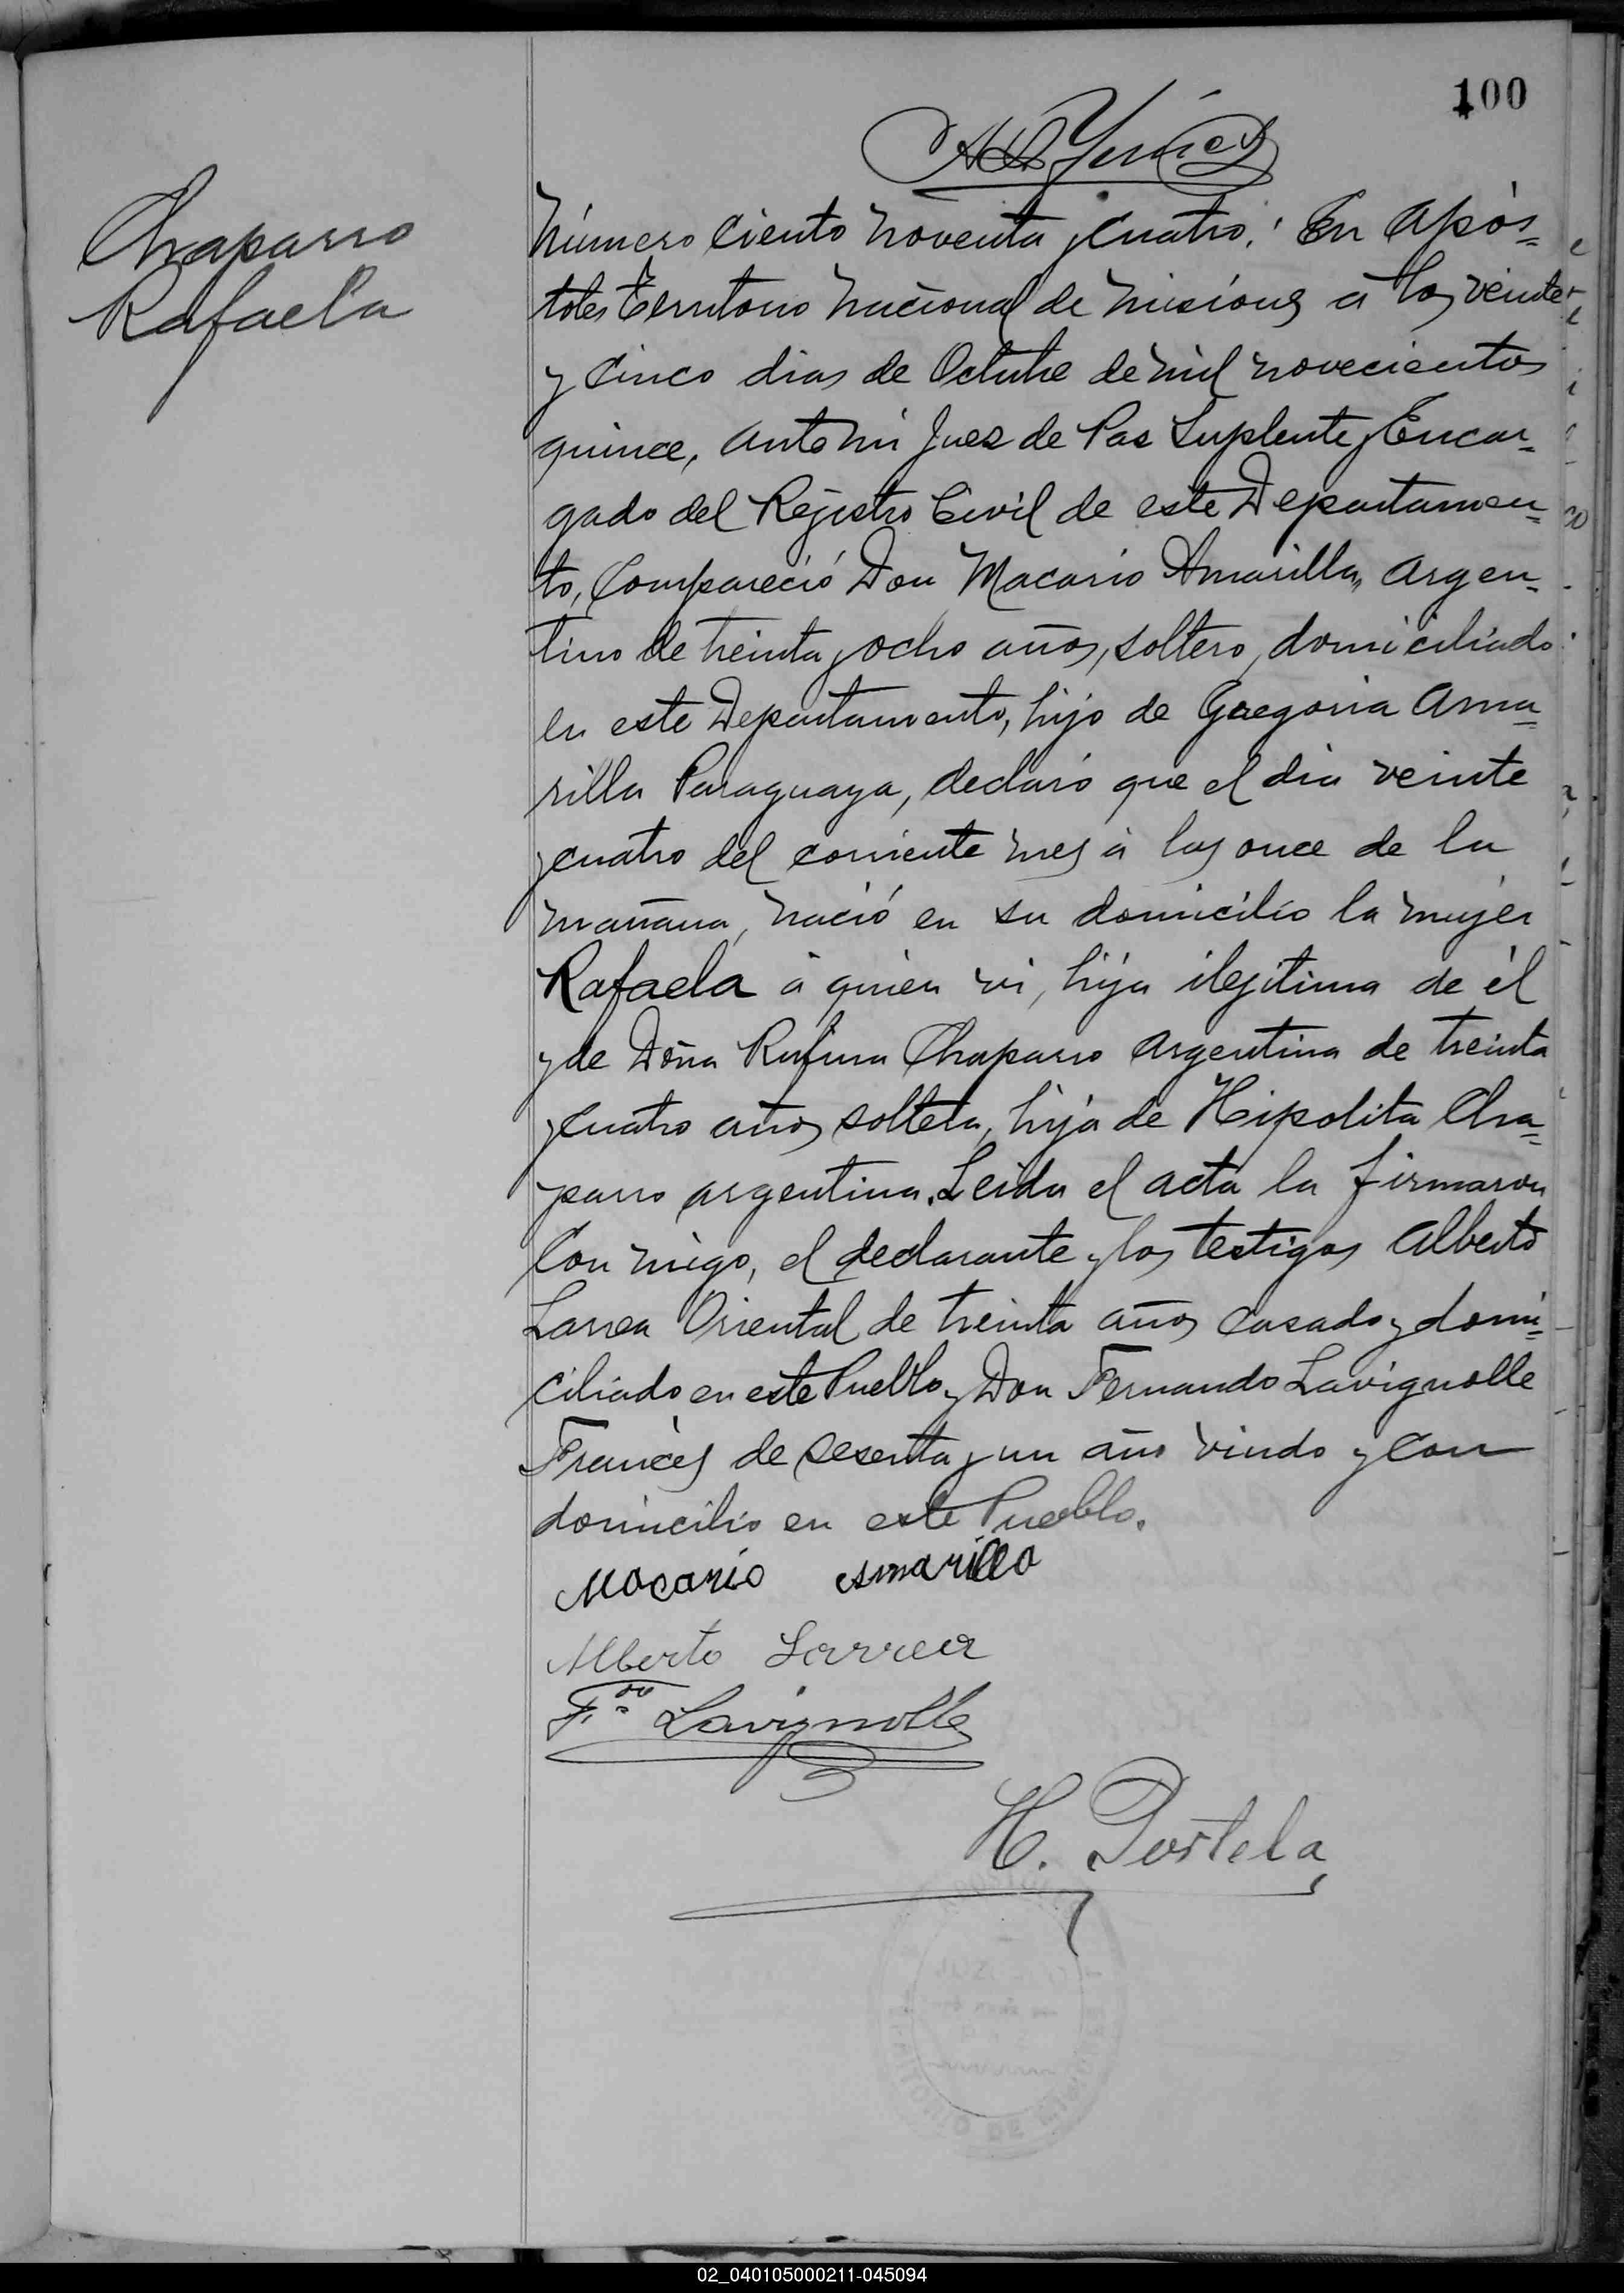 100
Chaparro
Rafaela
Número ciento noventa y cuatro: En Após=
toles Territorio Nacional de Misiones á los veinte
y cinco dias de Octubre de mil novecientos
quince, ante mi Juez de Paz Suplente y Encar=
gado del Registro Civil de este Departamen=
to, Compareció Don Macario Amarilla, argen=
tino de treinta y ocho años, soltero, domiciliado
en este Departamento, hijo de Gregoria Ama=
rilla Paraguaya, declaró que el dia veinte
y cuatro del corriente mes á las once de la
mañana, nació en su domicilio la mujer
Rafaela á quien vi, hija ilegitima de él
y de Doña Rufina Chaparro argentina de treinta
y cuatro años soltera, hija de Hipolita Cha=
parro argentina. Leida el acta la firmaron
Con migo, el declarante y los testigos Alberto
Larrea Oriental de treinta años casado y domi=
ciliado en este Pueblo y Don Fernando Lavignolle
Francés de sesenta y un año viudo y con
domicilio en este Pueblo.
Macario Amarilla
Alberto Larrea
F.do Lavignolle
H. Portela
02_040105000211-045094